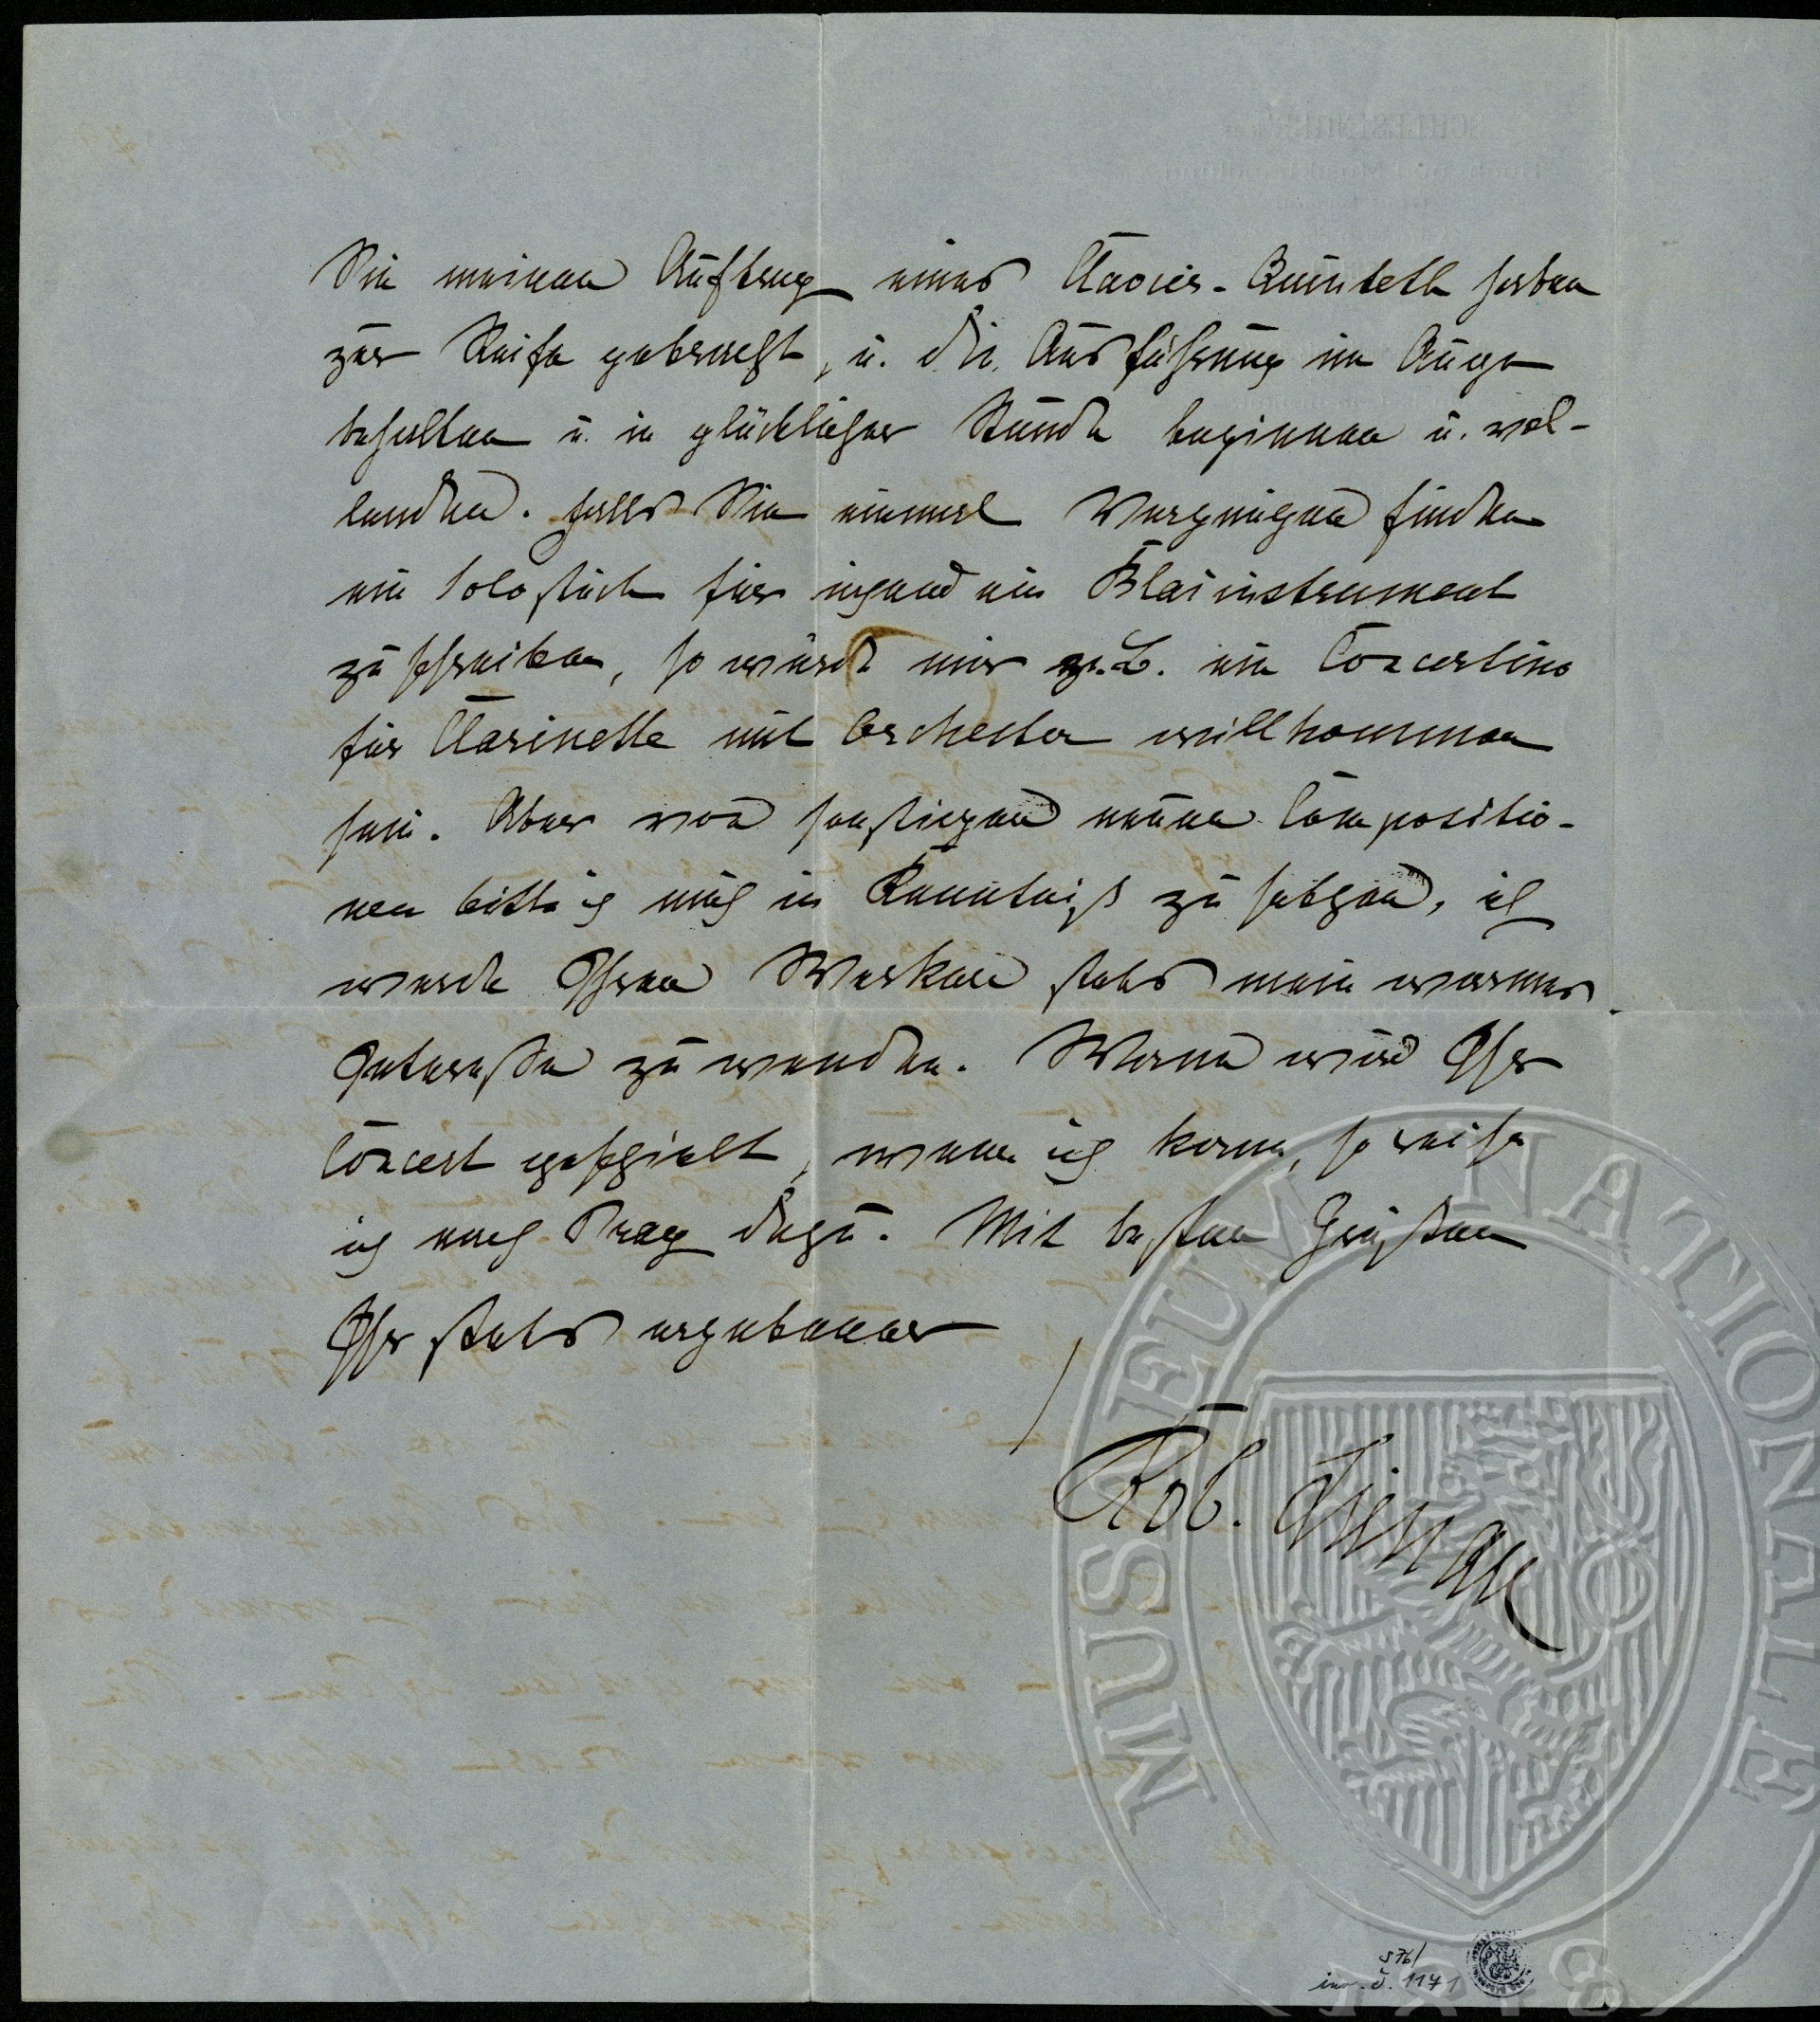 Sie meinen Auftrag eines Clavier-Quintett haben
zur Reife gebracht, u. die Ausführung im Auge
behalten u. in glücklicher Stunde beginnen u. vol-
lenden. Falls Sie einmal Vergnügen finden
ein Solostück für irgend ein Blasinstrument
zu schreiben, so würde mir z. B. ein Concertino
für Clarinette mit Orchester willkommen
sein. Aber von sonstigen neuen Compositio-
nen bitte ich mich in Kenntniß zu setzen, ich
werde Ihren Werken stets mein warmes
Interesse zu wenden. Wann wird Ihr
Concert gespielt, wenn ich kann, so reise
ich nach Prag dazu. Mit besten Grüßen
Ihr stets ergebener
Rob. Lienau
MUSAEUM NATIONALE
1818
S 76/
inv. č. 1171